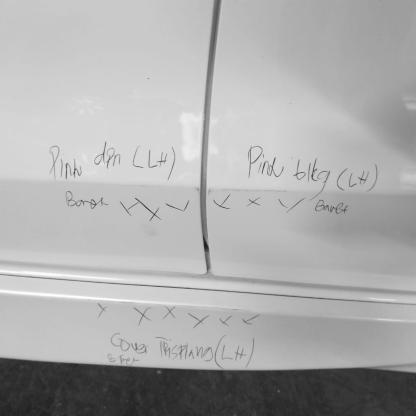 Pintu dpn (LH)
Pintu blkg (LH)
Baret
Baret
Cover Trisplang (LH)